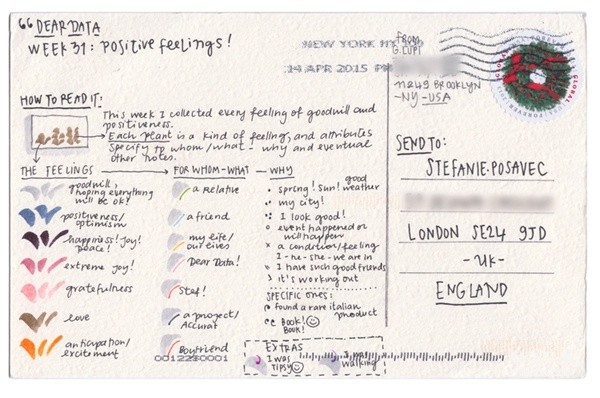 “ DEAR DATA
WEEK 31: POSITIVE FEELINGS!
FROM
G.LUPI
NEW YORK NY
14 APR 2015 PM
11249 BROOKLYN
-NY-USA
GLOBAL
FOREVER
HOW TO READ IT:
This week I collected every feeling of goodwill and
positiveness.
Each plant is a kind of feeling, and attributes
specify to whom/what! why and eventual
other notes.
THE FEELINGS
goodwill,
hoping everything
will be OK!
positiveness/
optimism
happiness! Joy!
peace!
extreme joy!
gratefulness
love
anticipation/
excitement
FOR WHOM-WHAT
a relative
a friend
my life/
ourselves
Dear Data!
Stef!
a project/
Accurat
Boyfriend
WHY
spring! Sun! good weather
my city!
I look good!
event happened or
will happen
a condition/feeling
I-he-she-we are in
I have such good friends
it's working out
SPECIFIC ONES:
found a rare italian
product
Book!
Book!
EXTRAS
I was
TIPSY
I was
walking
SEND TO:
STEFANIE.POSAVEC
LONDON SE24 9JD
-UK-
ENGLAND